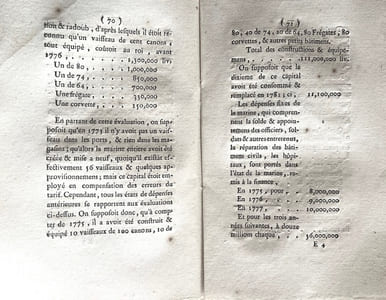 ( 70 )
tion & radoub, d'après lesquels il étoit ré-
connu qu'un vaisseau de cent canons,
tout équipé, coûtoit au roi, avant
1776, . . . . 1,300,000 liv.
Un de 80, . . . . 1,000,000
Un de 74, . . . . 850,000
Un de 64, . . . . 700,000
Une frégate, . . . . 336,000
Une corvette, . . . . 150,000
En partant de cette évaluation, on sup-
posoit qu'en 1775 il n'y avoit pas un vais-
seau dans les ports, & rien dans les ma-
gasins; qu'alors la marine entière avoit été
créée & mise à neuf, quoiqu'il existât ef-
fectivement 56 vaisseaux & quelques ap-
provisionnemens; mais ce capital étoit em-
ployé en compensation des erreurs du
tarif. Cependant, tous les états de dépenses
antérieures se rapportent aux évaluations
ci-dessus. On supposoit donc, qu'à comp-
ter de 1775, il a avoit été construit &
équipé 10 vaisseaux de 100 canons, 10 de
( 71 )
80, 40 de 74, 20 de 64, 80 Frégates, 80
corvettes, & autres petits bâtimens.
Total des constructions & équipe-
mens, . . . . 111,000,000 liv.
On supposoit que le
dixieme de ce capital
avoit été consommé &
remplacé en 1781; ci, 11,100,000
Les dépenses fixes de
la marine, qui compren-
nent la solde & appointe-
mens des officiers, sol-
dats & autres entretenus,
la réparation des bâti-
mens civils, les hôpi-
taux, sont portés dans
l'état de la marine, re-
mis à la finance,
En 1775, pour, . . 8,000,000
En 1776, . . . . 9,000,000
En 1777, . . . . 10,000,000
Et pour les trois an-
nées suivantes, à douze
millions chaque, . . . 36,000,000
E 4